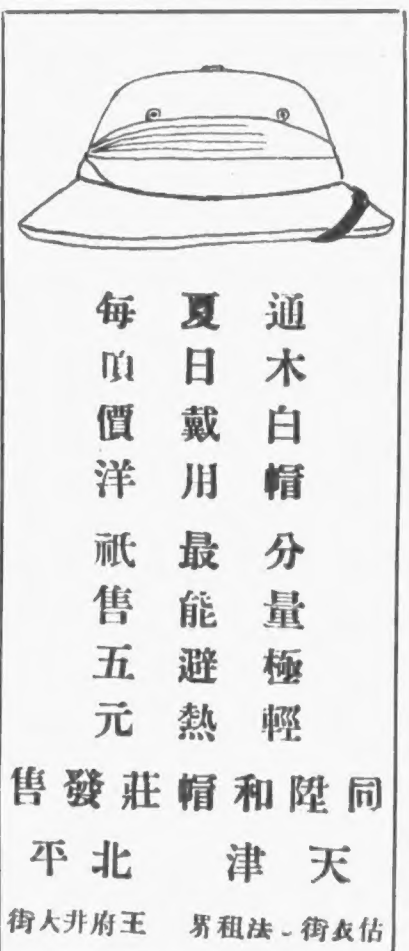 通木白帽分量極輕
夏日戴用最能避熱
每頂價洋祇售五元
同陞和帽莊發售
天津 北平
估衣街-法租界 王府井大街